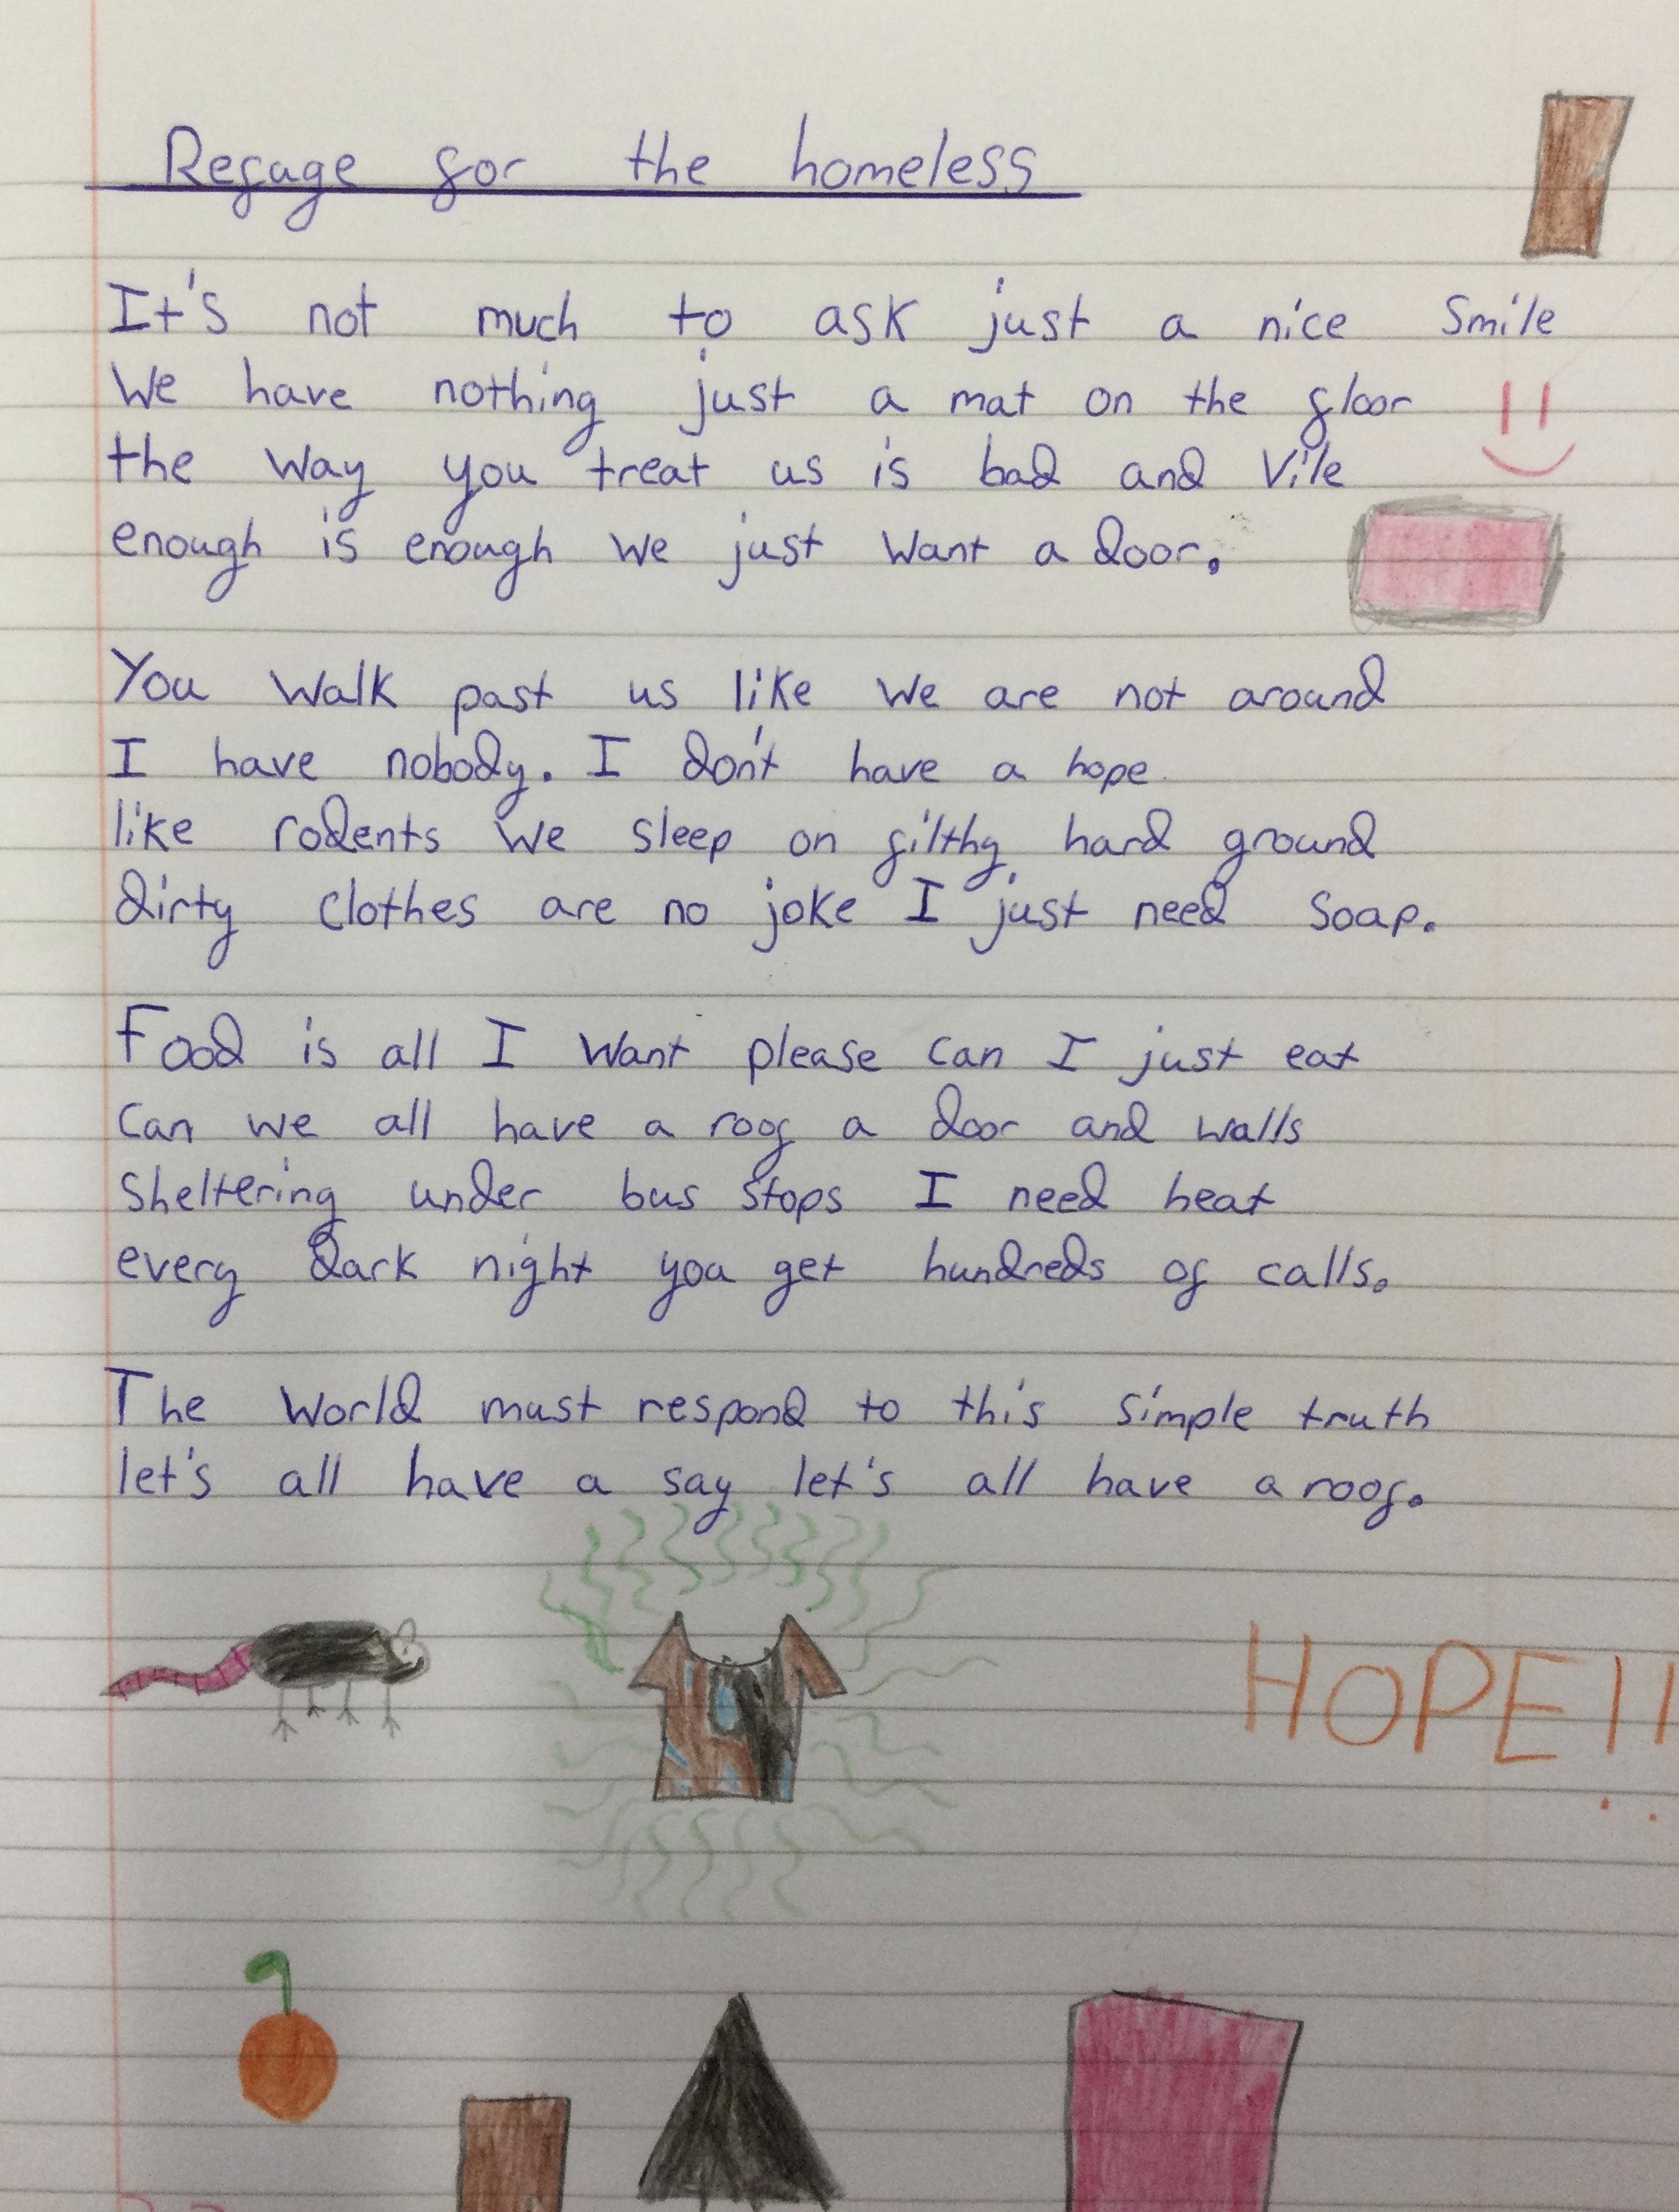 Refuge for the homeless
It's not much to ask just a nice smile
We have nothing just a mat on the floor
the way you treat us is bad and vile
enough is enough we just want a door.
You walk past us like we are not around
I have nobody. I don't have a hope
like rodents we sleep on filthy hard ground
dirty clothes are no joke I just need soap.
Food is all I want please can I just eat
Can we all have a roof a door and walls
Sheltering under bus stops I need heat
every dark night you get hundreds of calls.
The world must respond to this simple truth
let's all have a say let's all have a roof.
HOPE!!